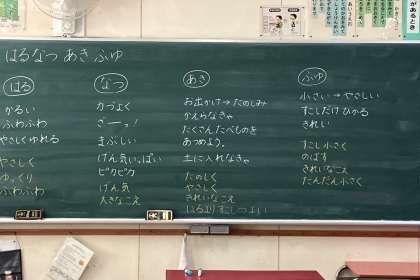 はるなつ あき ふゆ
はる
かるい
ふわふわ
やさしくゆれる
やさしく
ゆっくり
ふわふわ
なつ
力づよく
ざーっ!
まぶしい
げん気いっぱい
ピカピカ
げん気
大きなこえ
あき
お出かけ→たのしみ
かえらなきゃ
たくさんたべものを
あつめよう。
土に入れなきゃ
たのしく
やさしく
きれいなこえ
はるよりすこしつよい
ふゆ
小さい→やさしい
すこしだけひかる
きれい
すこし小さく
のばす
きれいなこえ
だんだん小さく